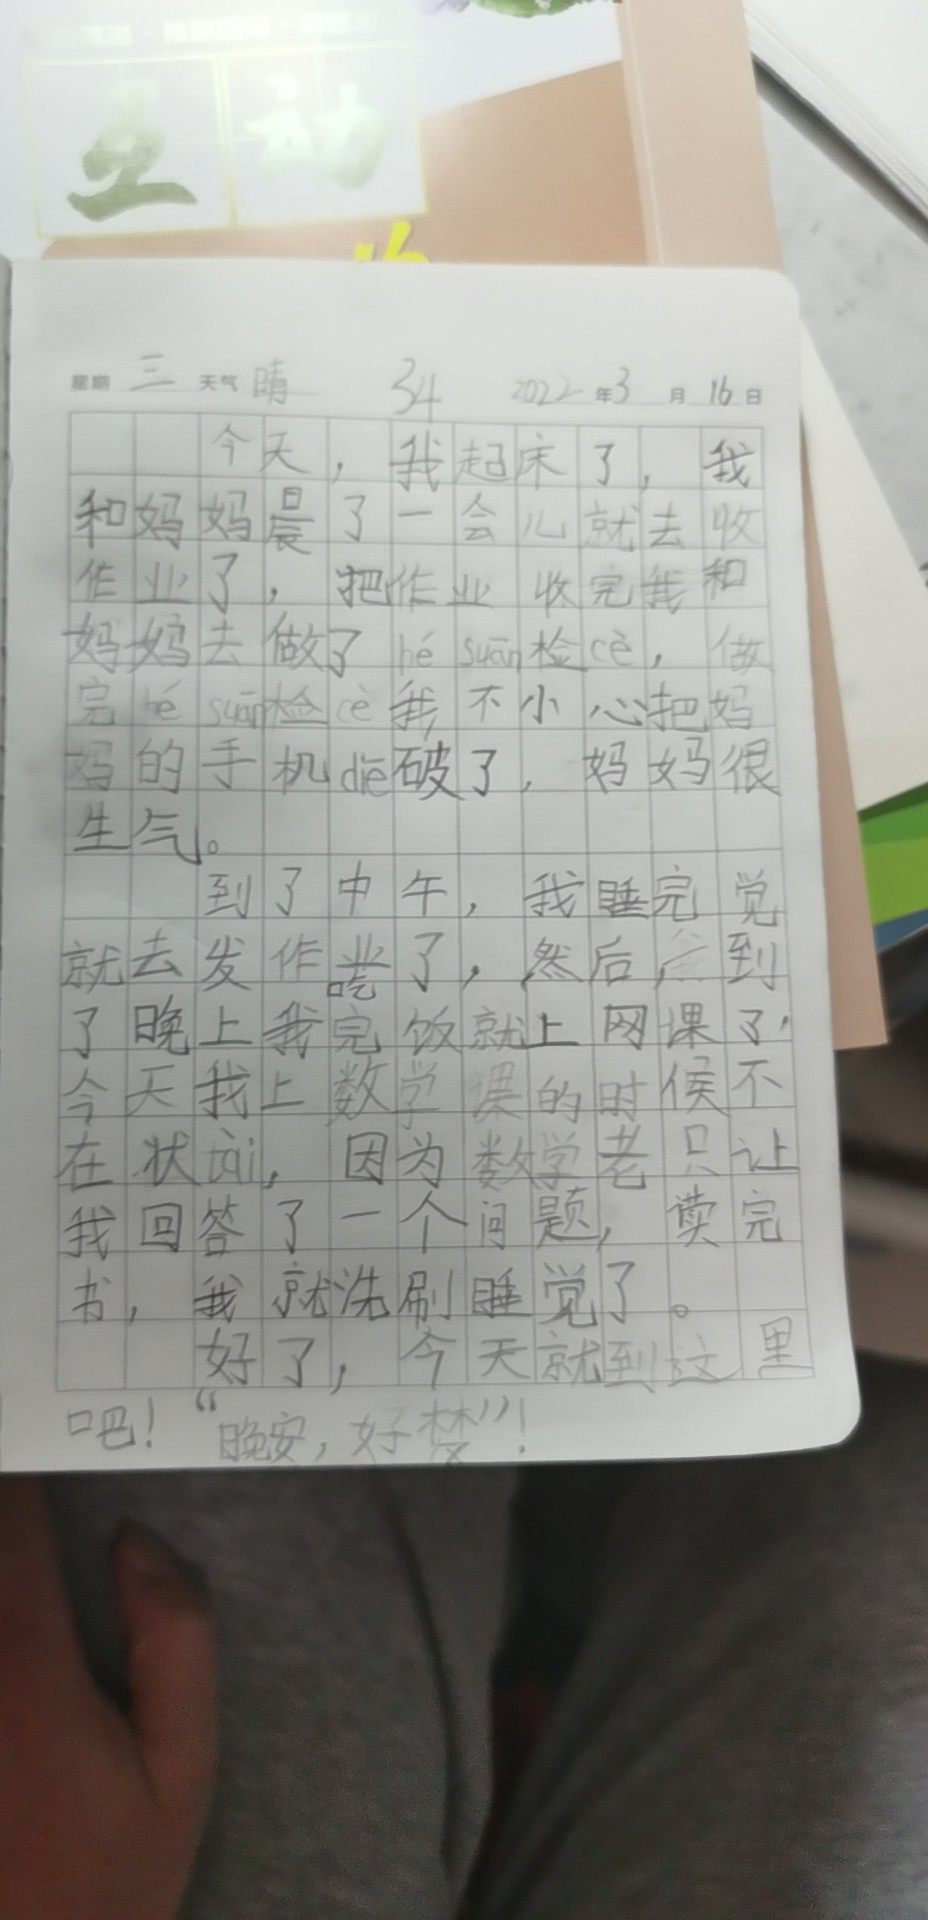 互动
星期 三 天气 晴 34 2022 年 3 月 16 日
今天，我起床了，我
和妈妈晨了一会儿就去收
作业了，把作业收完我和
妈妈去做了hé suān检cè，做
完hé suān检cè我不小心把妈
妈的手机diē破了，妈妈很
生气。
到了中午，我睡完觉
就去发作业了，然后，到
了晚上我吃完饭就上网课了，
今天我上数学课的时候不
在状tài，因为数学老只让
我回答了一个问题，读完
书，我就洗刷睡觉了。
好了，今天就到这里
吧！“晚安，好梦”！